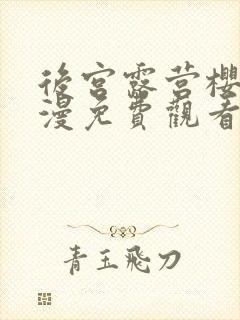 後宮露営樱
漫免費觀看
青玉飛刀